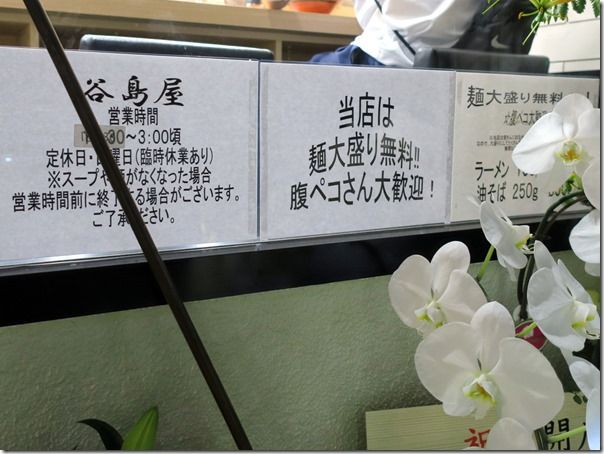 谷島屋
営業時間
30～3:00頃
定休日・曜日(臨時休業あり)
※スープや がなくなった場合
営業時間前に終了する場合がございます。
ご了承ださい。
当店は
麺大盛り無料!!
腹ペコさん大歓迎！
麺大盛り無料
腹ペコ大
ラーメン
油そば 250g
祝 開